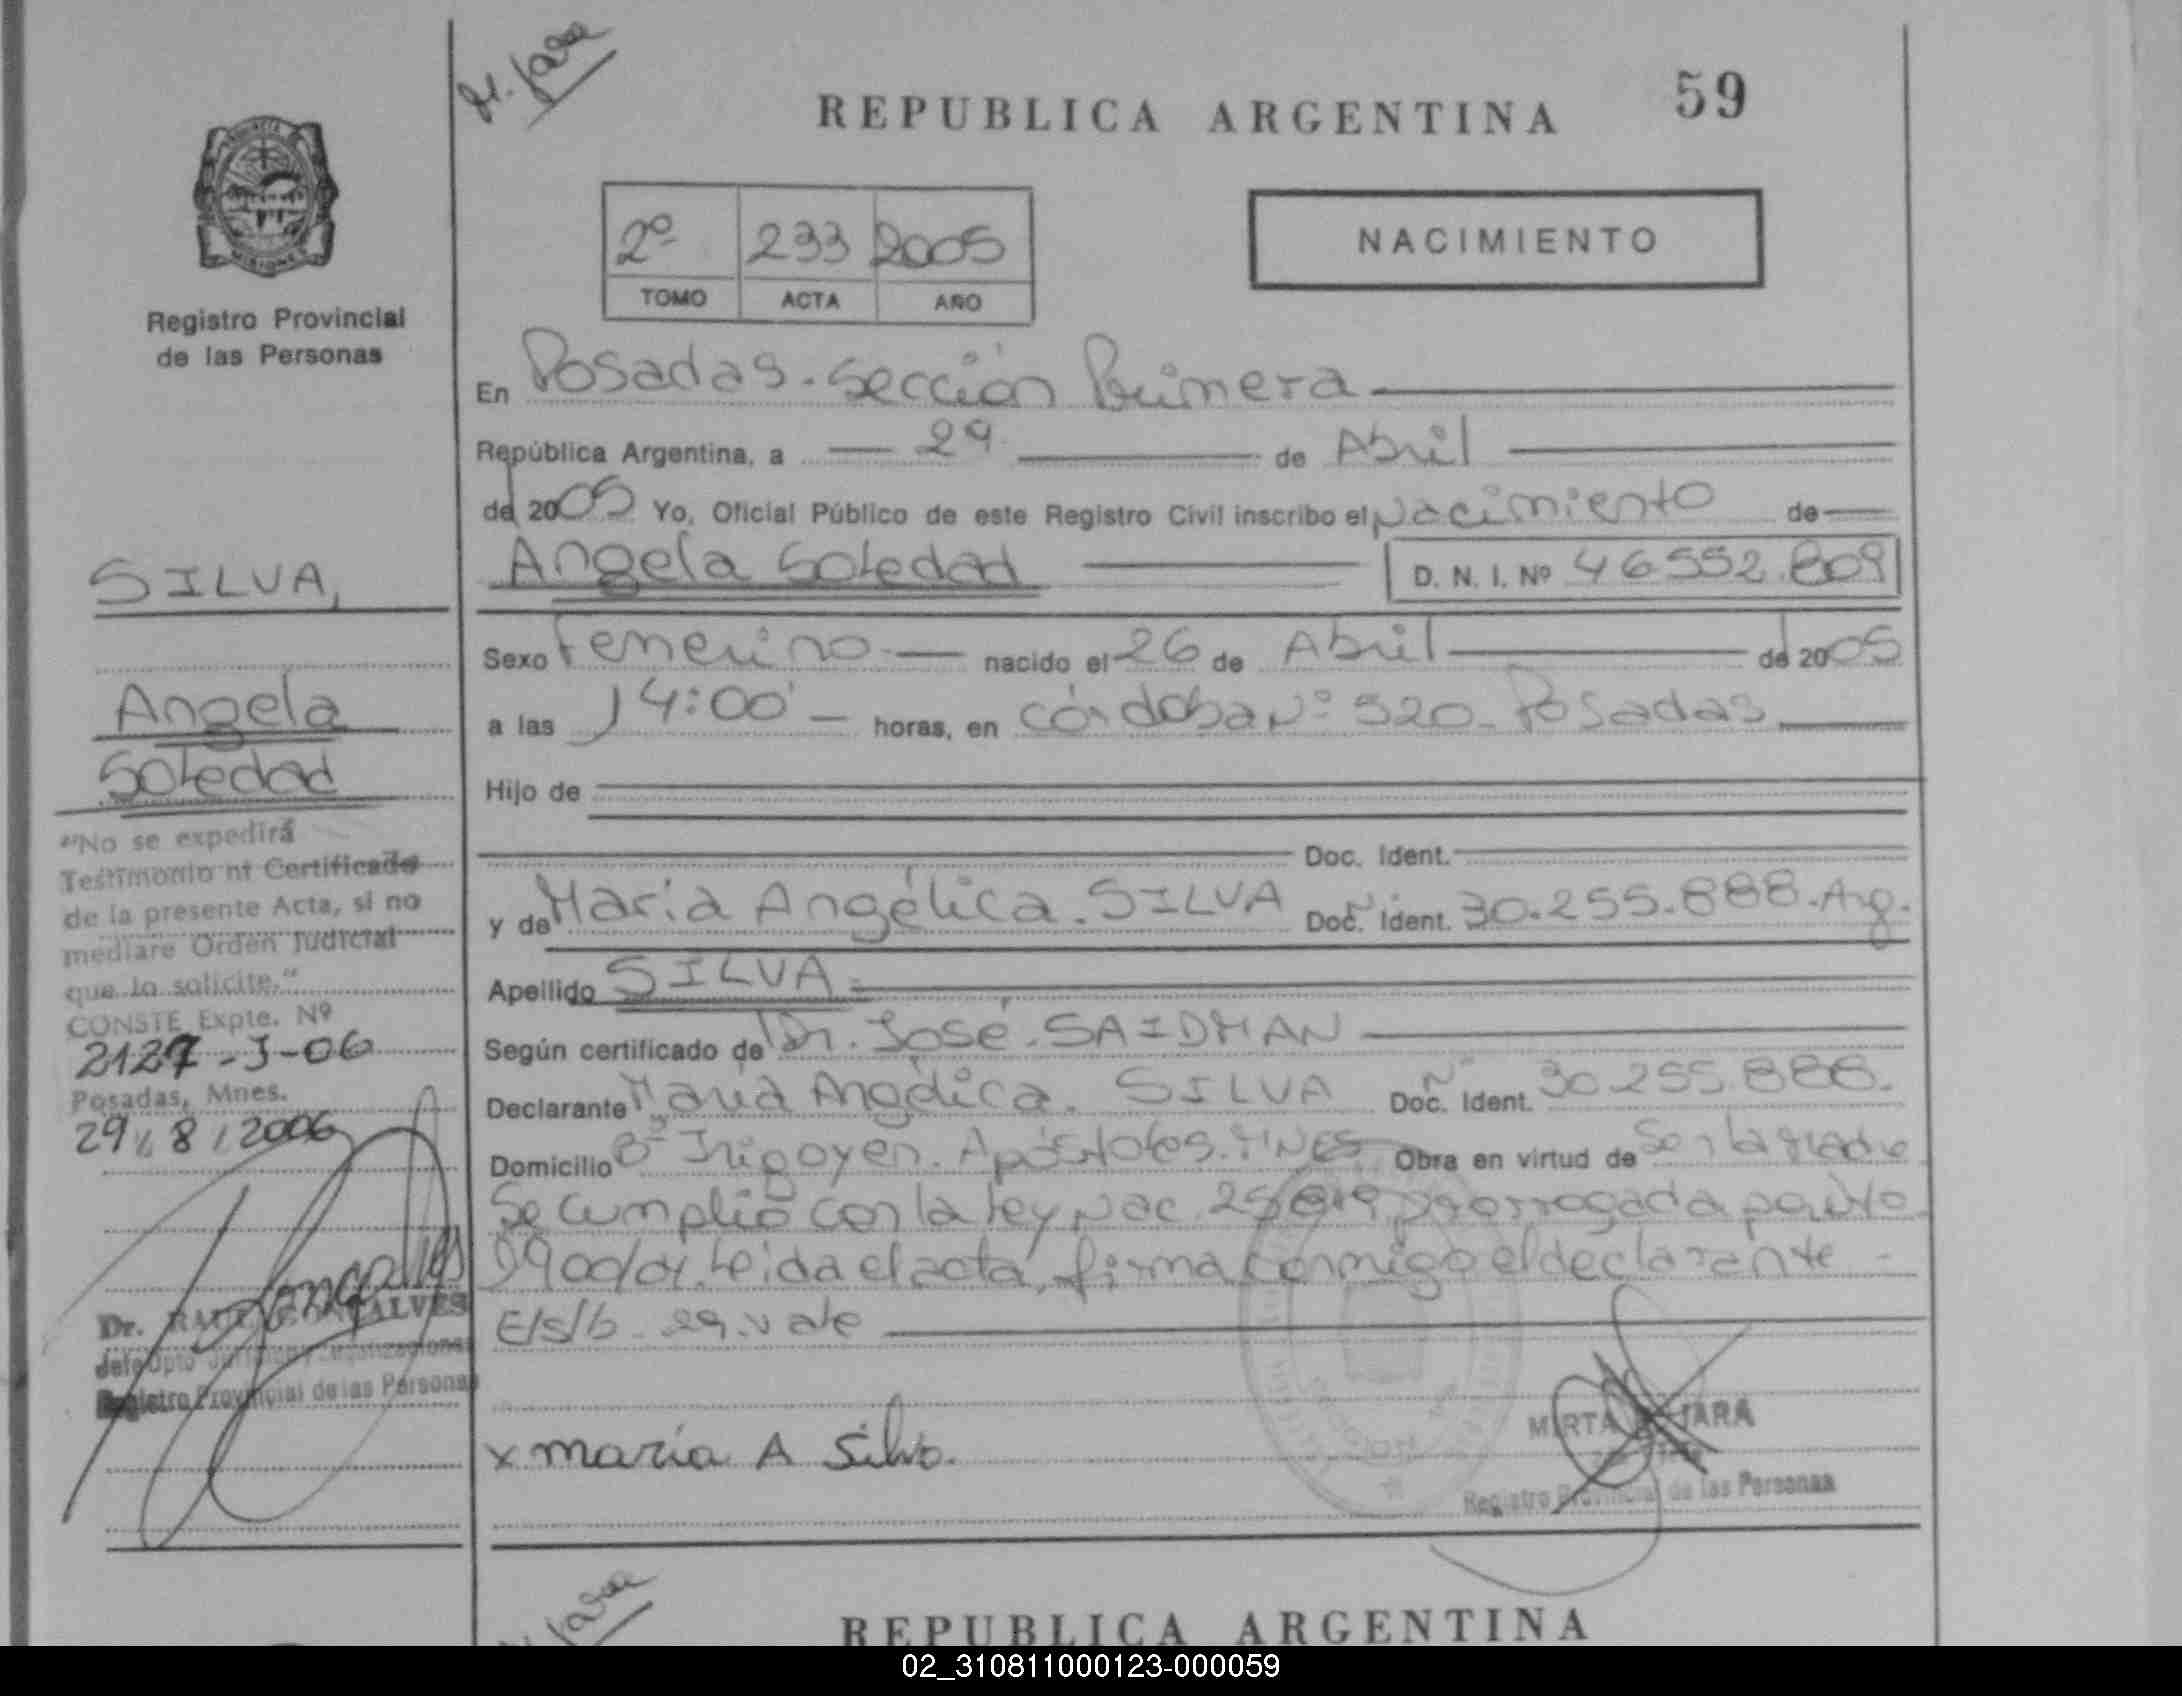 M. Jara
REPUBLICA ARGENTINA 59
PROVINCIA DE
MISIONES
Registro Provincial
de las Personas
2º 233 2005
TOMO ACTA AÑO
NACIMIENTO
En Posadas. Sección Primera
República Argentina, a 29 de Abril
de 2005 Yo, Oficial Público de este Registro Civil inscribo el Nacimiento de
Angela Soledad D. N. I. Nº 46552.809
SILVA,
Angela
Soledad
Sexo Femenino nacido el 26 de Abril de 2005
a las 14:00' horas, en Córdoba Nº 320. Posadas
Hijo de
Doc. Ident.
y de María Angélica. SILVA Doc. Ident. 30.255.888. Arg.
Apellido SILVA
Según certificado de Dr. José. SAIDMAN
Declarante María Angélica. SILVA Doc. Ident. 30.255.888.
Domicilio Bº Irigoyen. Apóstoles. MNES Obra en virtud de Ser la Madre
Se cumplió con la Ley Nac. 25819 prorrogada por Dto.
1900/04. Leida el acta, firma conmigo el declarante -
E/s/b. 29. vale
"No se expedirá
Testimonio ni Certificado
de la presente Acta, si no
mediare Orden Judicial
que lo solicite."
CONSTE Expte. Nº
2127-J-06
Posadas, Mnes.
29/8/2006
Gonçalves
Dr. RAUL GONÇALVES
Jefe Dpto Jurídico y Legalizaciones
Registro Provincial de las Personas
x maría A Silva.
MIRTA JARA
Registro Provincial de las Personas
Jara
REPUBLICA ARGENTINA
02_310811000123-000059